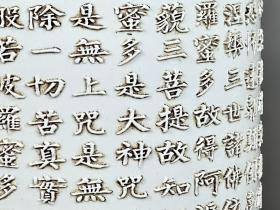 涅槃三世諸佛
羅蜜多故得阿
藐三菩提故知
蜜多是大神咒
是無上咒是無
除一切苦真實
般若波羅蜜多